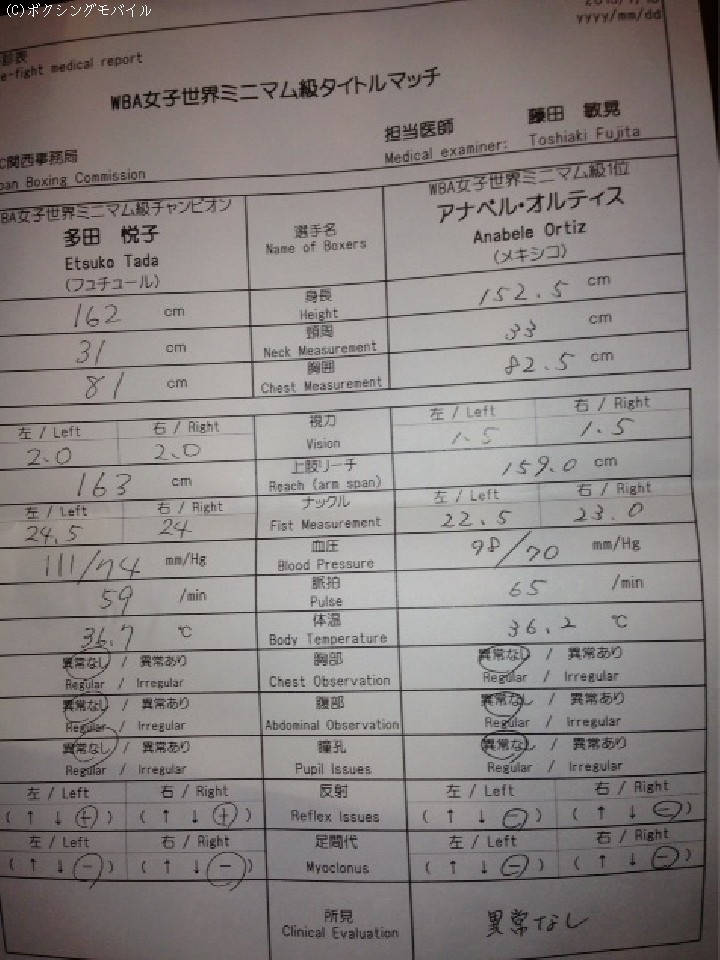 (C)ボクシングモバイル
yyyy/mm/dd
e-fight medical report
WBA女子世界ミニマム級タイトルマッチ
担当医師 藤田 敏晃
Medical examiner: Toshiaki Fujita
C関西事務局
pan Boxing Commission
BA女子世界ミニマム級チャンピオン 選手名 WBA女子世界ミニマム級1位
多田 悦子 Name of Boxers アナベル・オルティス
Etsuko Tada Anabele Ortiz
(フュチュール) (メキシコ)
162 cm 身長 152.5 cm
Height
31 cm 頸周 33 cm
Neck Measurement
81 cm 胸囲 82.5 cm
Chest Measurement
左 / Left 右 / Right 視力 左 / Left 右 / Right
2.0 2.0 Vision 1.5 1.5
163 cm 上肢リーチ 159.0 cm
Reach (arm span)
左 / Left 右 / Right ナックル 左 / Left 右 / Right
24.5 24 Fist Measurement 22.5 23.0
111/74 mm/Hg 血圧 98/70 mm/Hg
Blood Pressure
59 /min 脈拍 65 /min
Pulse
36.7 ℃ 体温 36.2 ℃
Body Temperature
異常なし / 異常あり 胸部 異常なし / 異常あり
Regular / Irregular Chest Observation Regular / Irregular
異常なし / 異常あり 腹部 異常なし / 異常あり
Regular / Irregular Abdominal Observation Regular / Irregular
異常なし / 異常あり 瞳孔 異常なし / 異常あり
Regular / Irregular Pupil Issues Regular / Irregular
左 / Left 右 / Right 反射 左 / Left 右 / Right
( ↑ ↓ + ) ( ↑ ↓ + ) Reflex Issues ( ↑ ↓ − ) ( ↑ ↓ − )
左 / Left 右 / Right 足間代 左 / Left 右 / Right
( ↑ ↓ − ) ( ↑ ↓ − ) Myoclonus ( ↑ ↓ − ) ( ↑ ↓ − )
所見 異常なし
Clinical Evaluation